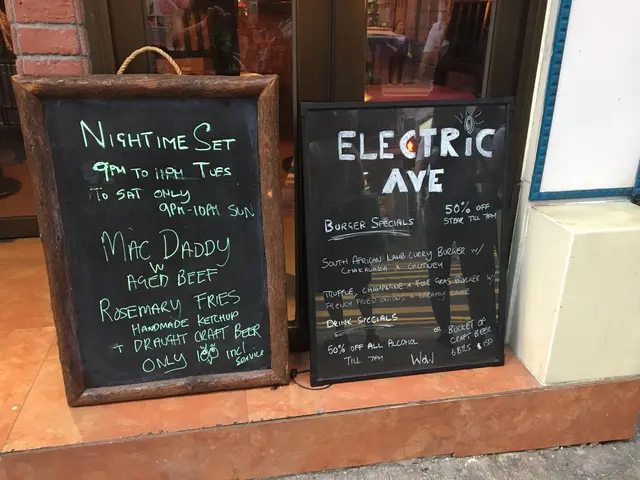 NIGHTIME SET
9PM TO 11PM TUES
TO SAT ONLY
9PM-10PM SUN
MAC DADDY
W
AGED BEEF
ROSEMARY FRIES
HANDMADE KETCHUP
+ DRAUGHT CRAFT BEER
ONLY incl
service
ELECTRIC
AVE
BURGER SPECIALS
50% OFF
STEAK TILL 7PM
SOUTH AFRICAN LAMB CURRY BURGER W/
CHAKALAKA & CHUTNEY
TRUFFLE, CHAMPAGNE & FOIE GRAS BURGER W/
FRENCH FRIED ONIONS & CREAMY SAUCE
DRINK SPECIALS
50% OFF ALL ALCOHOL
TILL 7PM
WOW!
OR BUCKET OF
CRAFT BEER
6BTLS $150